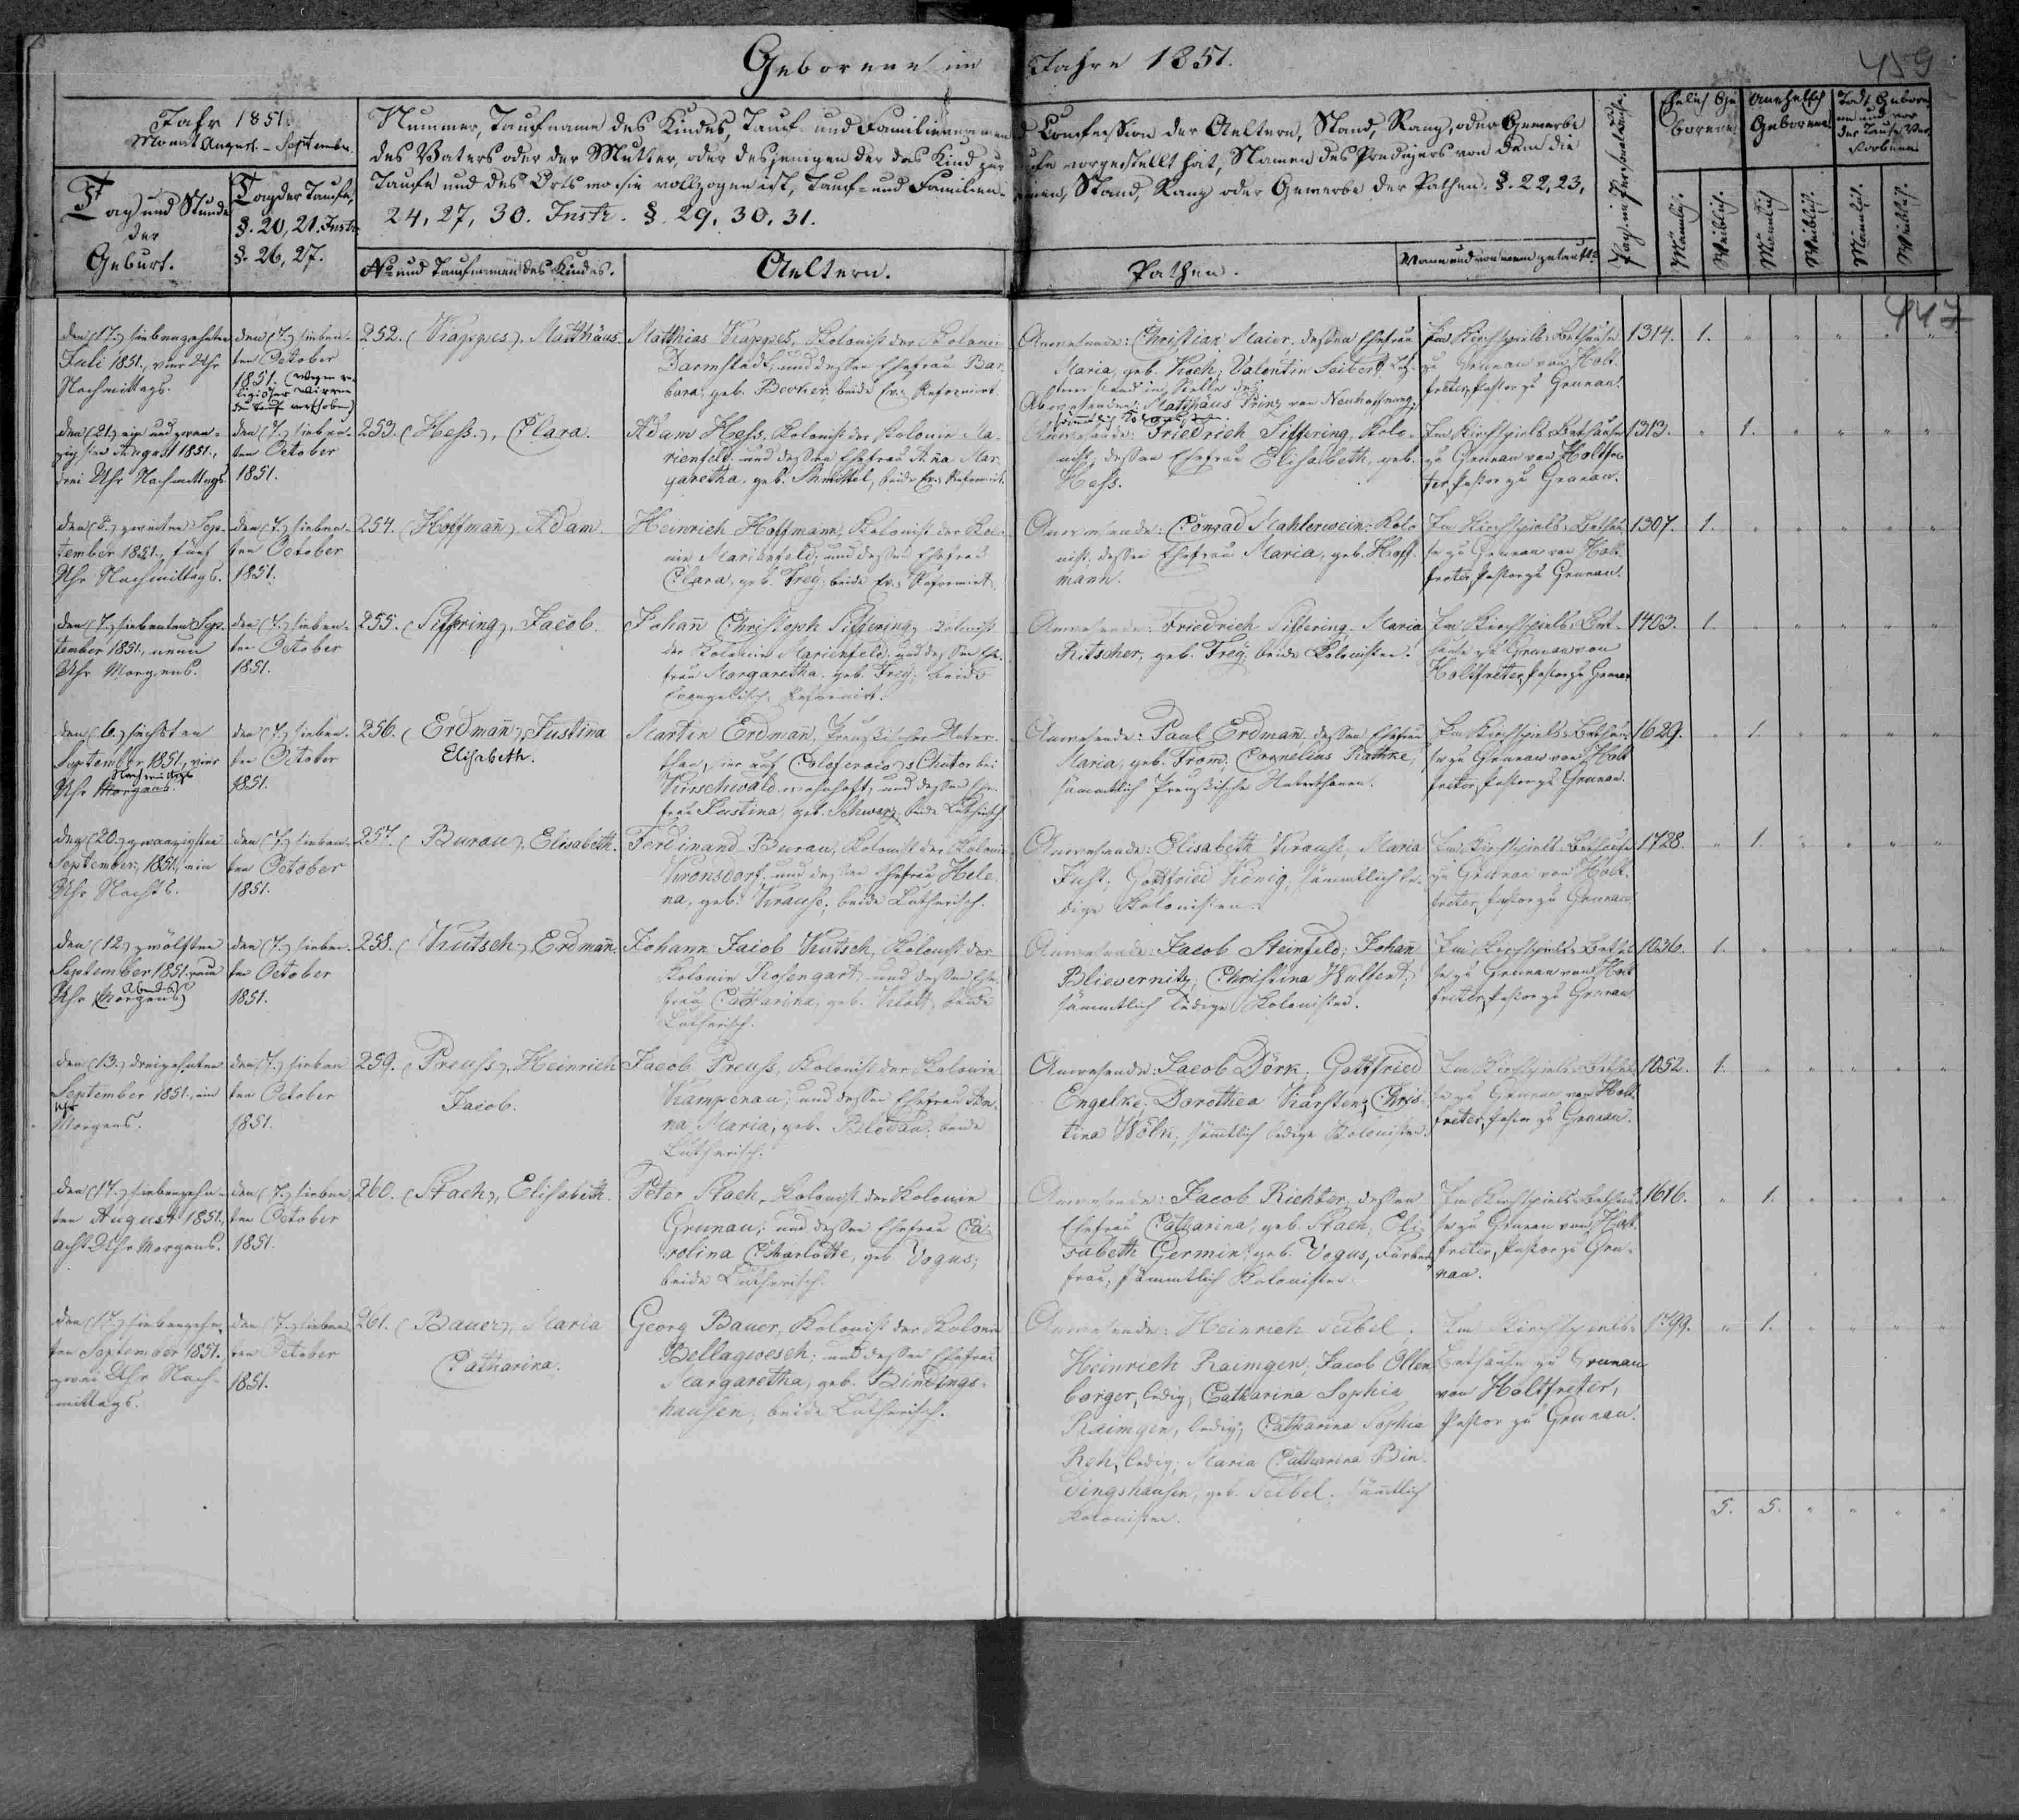 Geborene im Jahre 1851.
459
Jahr 1851.
Monat August. - September.
Tag und Stunde
der
Geburt.
Tag der Taufe,
§. 20, 21. Instr.
§. 26, 27.
Nummer, Taufname des Kindes, Tauf- und Familiennamen
des Vaters oder der Mutter, oder desjenigen der das Kind zur
Taufe und des Orts wo sie vollzogen ist, Tauf- und Familien-
24, 27, 30. Instr. §. 29, 30, 31.
No und Taufnamen des Kindes.
Aeltern.
Confession der Aeltern, Stand, Rang, oder Gewerbe
vorgestellt hat, Namen des Predigers von dem die
Stand, Rang oder Gewerbe der Pathen. §. 22, 23,
Pathen.
Wann und von wem getauft.
Pag. im Personalbuche.
Ehelich Ge-
borene
Unehelich
Geborene
Todt Gebore-
ne und vor
der Taufe Ver-
storbene
Männlich.
Weiblich.
Männlich
Weiblich.
Männlich.
Weiblich.
447
den (17.) siebenzehnten
Juli 1851., vier Uhr
Nachmittags.
den (7.) sieben-
ten October
1851. (Wegen re-
ligiöser Wirren
die Taufe verschoben)
252. (Kappes), Matthäus.
Matthias Kappes, Kolonist der Kolonie
Darmstadt, und dessen Ehefrau Bar-
bara, geb. Becker, beide Ev.: Reformirt.
Anwesende: Christian Maier, dessen Ehefrau
Maria, geb. Koch; Valentin Seibert,
stand in Stelle des
Abwesenden: Matthäus Prinz von Neuhoffnung;
Im Kirchspiels-Bethause
zu Grunau von Holt-
freter, Pastor zu Grunau.
1314. 1.
den (21.) ein und zwan-
zigsten August 1851.,
drei Uhr Nachmittags.
den (7.) sieben-
ten October
1851.
253. (Hess.), Clara.
Adam Hess, Kolonist der Kolonie Ma-
rienfeld, und dessen Ehefrau Anna Mar-
garetha, geb. Schmittel, beide Ev.: Reformirt.
Anwesende: Friedrich Siffering, Kolo-
nist, dessen Ehefrau Elisabeth, geb.
Hess.
Im Kirchspiels-Bethause
zu Grunau von Holtfre-
ter, Pastor zu Grunau.
1313. 1.
den (2.) zweiten Sep-
tember 1851., fünf
Uhr Nachmittags.
den (7.) sieben-
ten October
1851.
254. (Hoffmañ), Adam.
Heinrich Hoffmann, Kolonist der Kolo-
nie Marienfeld, und dessen Ehefrau
Clara, geb. Frey, beide Ev.: Reformirt.
Anwesende: Conrad Mahlerwein, Kolo-
nist, dessen Ehefrau Maria, geb. Hoff-
mann.
Im Kirchspiels-Bethau-
se zu Grunau von Holt-
freter, Pastor zu Grunau.
1307. 1.
den (7.) siebenten Sep-
tember 1851., neun
Uhr Morgens.
den (7.) sieben-
ten October
1851.
255. (Siffring), Jacob.
Johañ Christoph Siffering, Kolonist
der Kolonie Marienfeld, und dessen Ehe-
frau Margaretha, geb. Frey, beide
Evangelisch-Reformirt.
Anwesende: Friedrich Siffering, Maria
Ritscher, geb. Frey, beide Kolonisten.
Im Kirchspiels-Bet-
hause zu Grunau von
Holtfreter, Pastor zu Grunau
1403. 1.
den (6.) sechsten
September 1851., vier
Nachmittags
Uhr Morgens.
den (7.) sieben-
ten October
1851.
256. (Erdmañ), Justina
Elisabeth.
Martin Erdmañ, Preußischer Unter-
than, hier auf Chutor bei
Kirschwald wohnhaft, und dessen Ehe-
frau Justina, geb. Schwarz, beide Lutherisch
Anwesende: Paul Erdmañ, dessen Ehefrau
Maria, geb. From; Cornelius Rathke,
sämmtlich Preußische Unterthanen.
Im Kirchspiels-Bethau-
se zu Grunau von Holt-
freter, Pastor zu Grunau.
1629. 1.
den (20.) zwanzigsten
September, 1851., ein
Uhr Nachts.
den (7.) sieben-
ten October
1851.
257. (Burau), Elisabeth.
Ferdinand Burau, Kolonist der Kolonie
Kronsdorf, und dessen Ehefrau Hele-
na, geb. Krause, beide Lutherisch.
Anwesende: Elisabeth Krause, Maria
Just, Gottfried König, sämmtlich le-
dige Kolonisten.
Im Kirchspiels-Bethause
zu Grunau von Holt-
freter, Pastor zu Grunau.
1728. 1.
den (12.) zwölften
September 1851. neun
Abends
Uhr (Morgens)
den (7.) sieben-
ten October
1851.
258. (Kutsch), Erdmañ.
Johann Jacob Kutsch, Kolonist der
Kolonie Rosengart, und dessen Ehe-
frau Catharina, geb. Klatt, beide
Lutherisch.
Anwesende: Jacob Steinfeld, Johañ
Blievernitz, Christina Wulfert,
sämmtlich ledige Kolonisten.
Im Kirchspiels-Bethau-
se zu Grunau von Holt-
freter, Pastor zu Grunau
1036. 1.
den (13.) dreizehnten
September 1851., ein
Uhr
Morgens.
den (7.) sieben-
ten October
1851.
259. (Preuss), Heinrich
Jacob.
Jacob Preuss, Kolonist der Kolonie
Kampenau, und dessen Ehefrau An-
na Maria, geb. Blodau, beide
Lutherisch.
Anwesende: Jacob Dörk, Gottfried
Engelke, Dorothea Karsten, Chris-
tina Wölk, sämtlich ledige Kolonisten.
Im Kirchspiels-Bethau-
se zu Grunau von Holt-
freter, Pastor zu Grunau.
1052. 1.
den (17.) siebenzehn-
ten August 1851.,
acht Uhr Morgens.
den (7.) sieben-
ten October
1851.
260. (Stach), Elisabeth.
Peter Stach, Kolonist der Kolonie
Grunau, und dessen Ehefrau Ca-
rolina Charlotte, geb. Vogus,
beide Lutherisch.
Anwesende: Jacob Richter, dessen
Ehefrau Catharina, geb. Stach, Eli-
sabeth Germin, geb. Vogus, Färbers-
frau, sämmtlich Kolonisten.
Im Kirchspiels-Bethau-
se zu Grunau von Holt-
freter, Pastor zu Gru-
nau.
1616. 1.
den (17.) siebenzehn-
ten September 1851.,
zwei Uhr Nach-
mittags.
den (7.) sieben-
ten October
1851.
261. (Bauer), Maria
Catharina.
Georg Bauer, Kolonist der Kolonie
Bellagwesch, und dessen Ehefrau
Margaretha, geb. Bindings-
hausen, beide Lutherisch.
Anwesende: Heinrich Seibel,
Heinrich Raimgen, Jacob Ollen-
borger, ledig, Catharina Sophia
Raimgen, ledig, Catharina Sophia
Reh, ledig, Maria Catharina Bin-
dingshausen, geb. Seibel, sämtlich
Kolonisten.
Im Kirchspiels-
Bethause zu Grunau
von Holtfreter,
Pastor zu Grunau.
1799. 1.
5. 5.